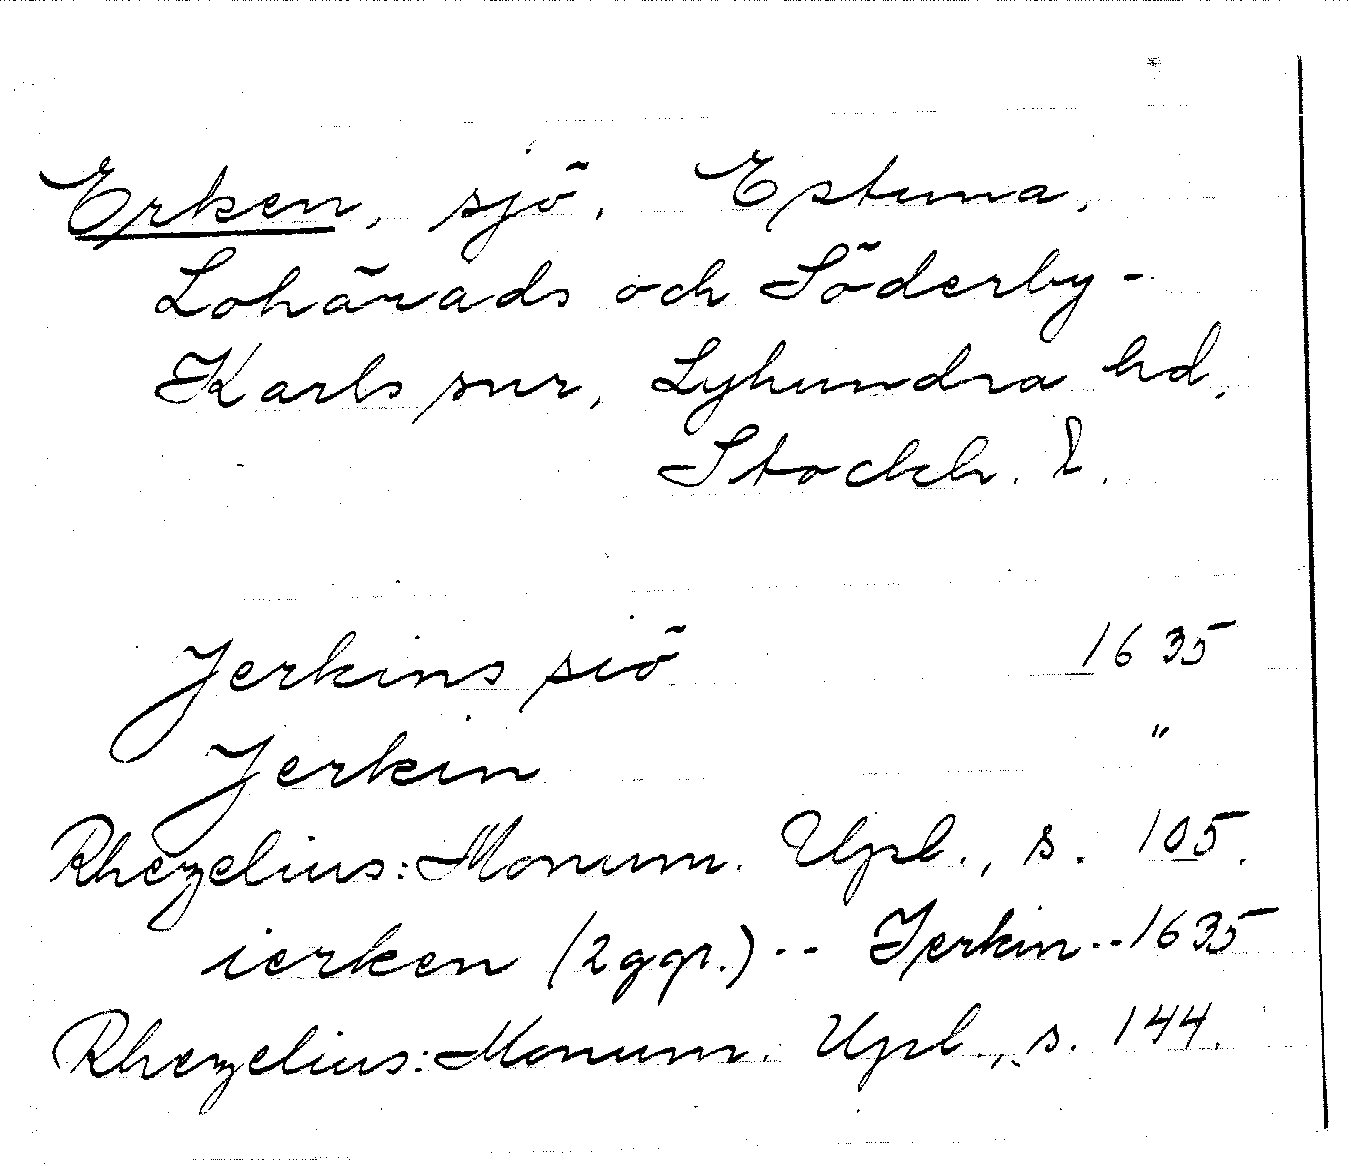 Erken, sjö, Estuna,
Lohärads och Söderby-
Karls snr, Lyhundra hd,
Stockh. l.
Jerkins siö 1635
Jerkin "
Rhezelius: Monum. Upl., s. 105.
ierken (2 ggr.) -- Jerkin -- 1635
Rhezelius: Monum. Upl., s. 144.